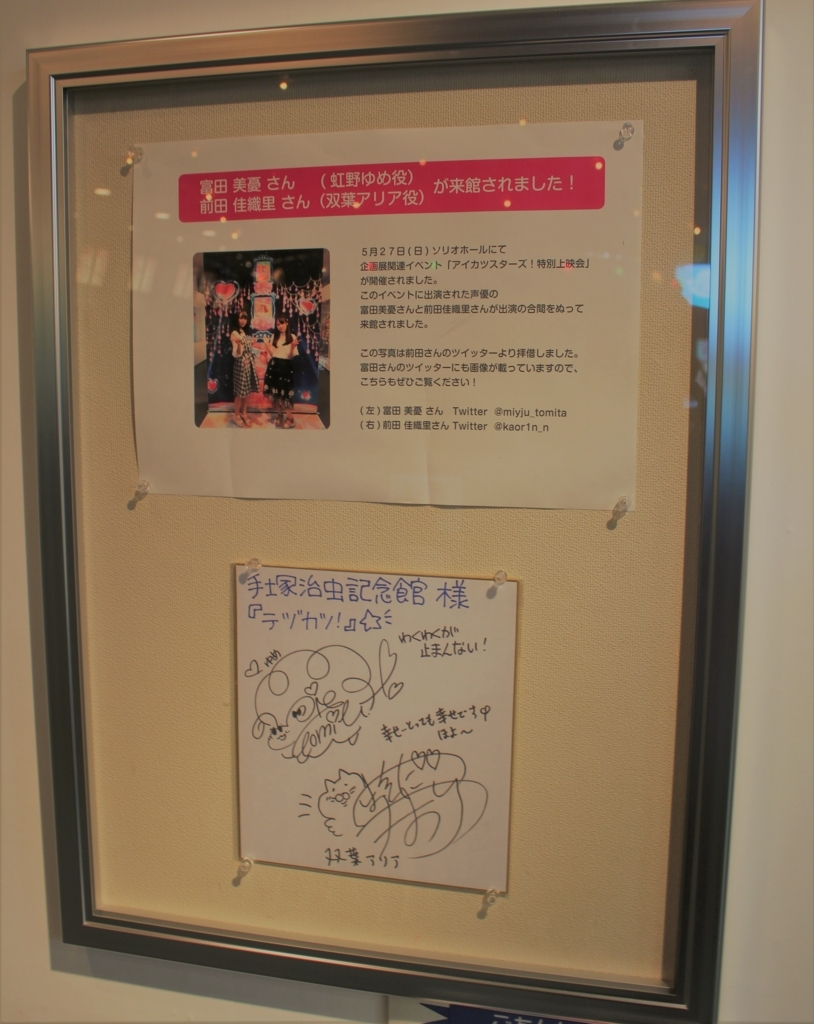 富田 美憂 さん （虹野ゆめ役）
前田 佳織里 さん（双葉アリア役） が来館されました！
５月２７日(日)ソリオホールにて
企画展関連イベント「アイカツスターズ！特別上映会」
が開催されました。
このイベントに出演された声優の
富田美憂さんと前田佳織里さんが出演の合間をぬって
来館されました。
この写真は前田さんのツイッターより拝借しました。
富田さんのツイッターにも画像が載っていますので、
こちらもぜひご覧ください！
(左)富田 美憂 さん Twitter @miyju_tomita
(右)前田 佳織里さん Twitter @kaor1n_n
手塚治虫記念館 様
『テヅカツ！』☆
わくわくが
止まんない！
♡ゆめ
幸せ〜とっても幸せです
ほよ〜
双葉アリア